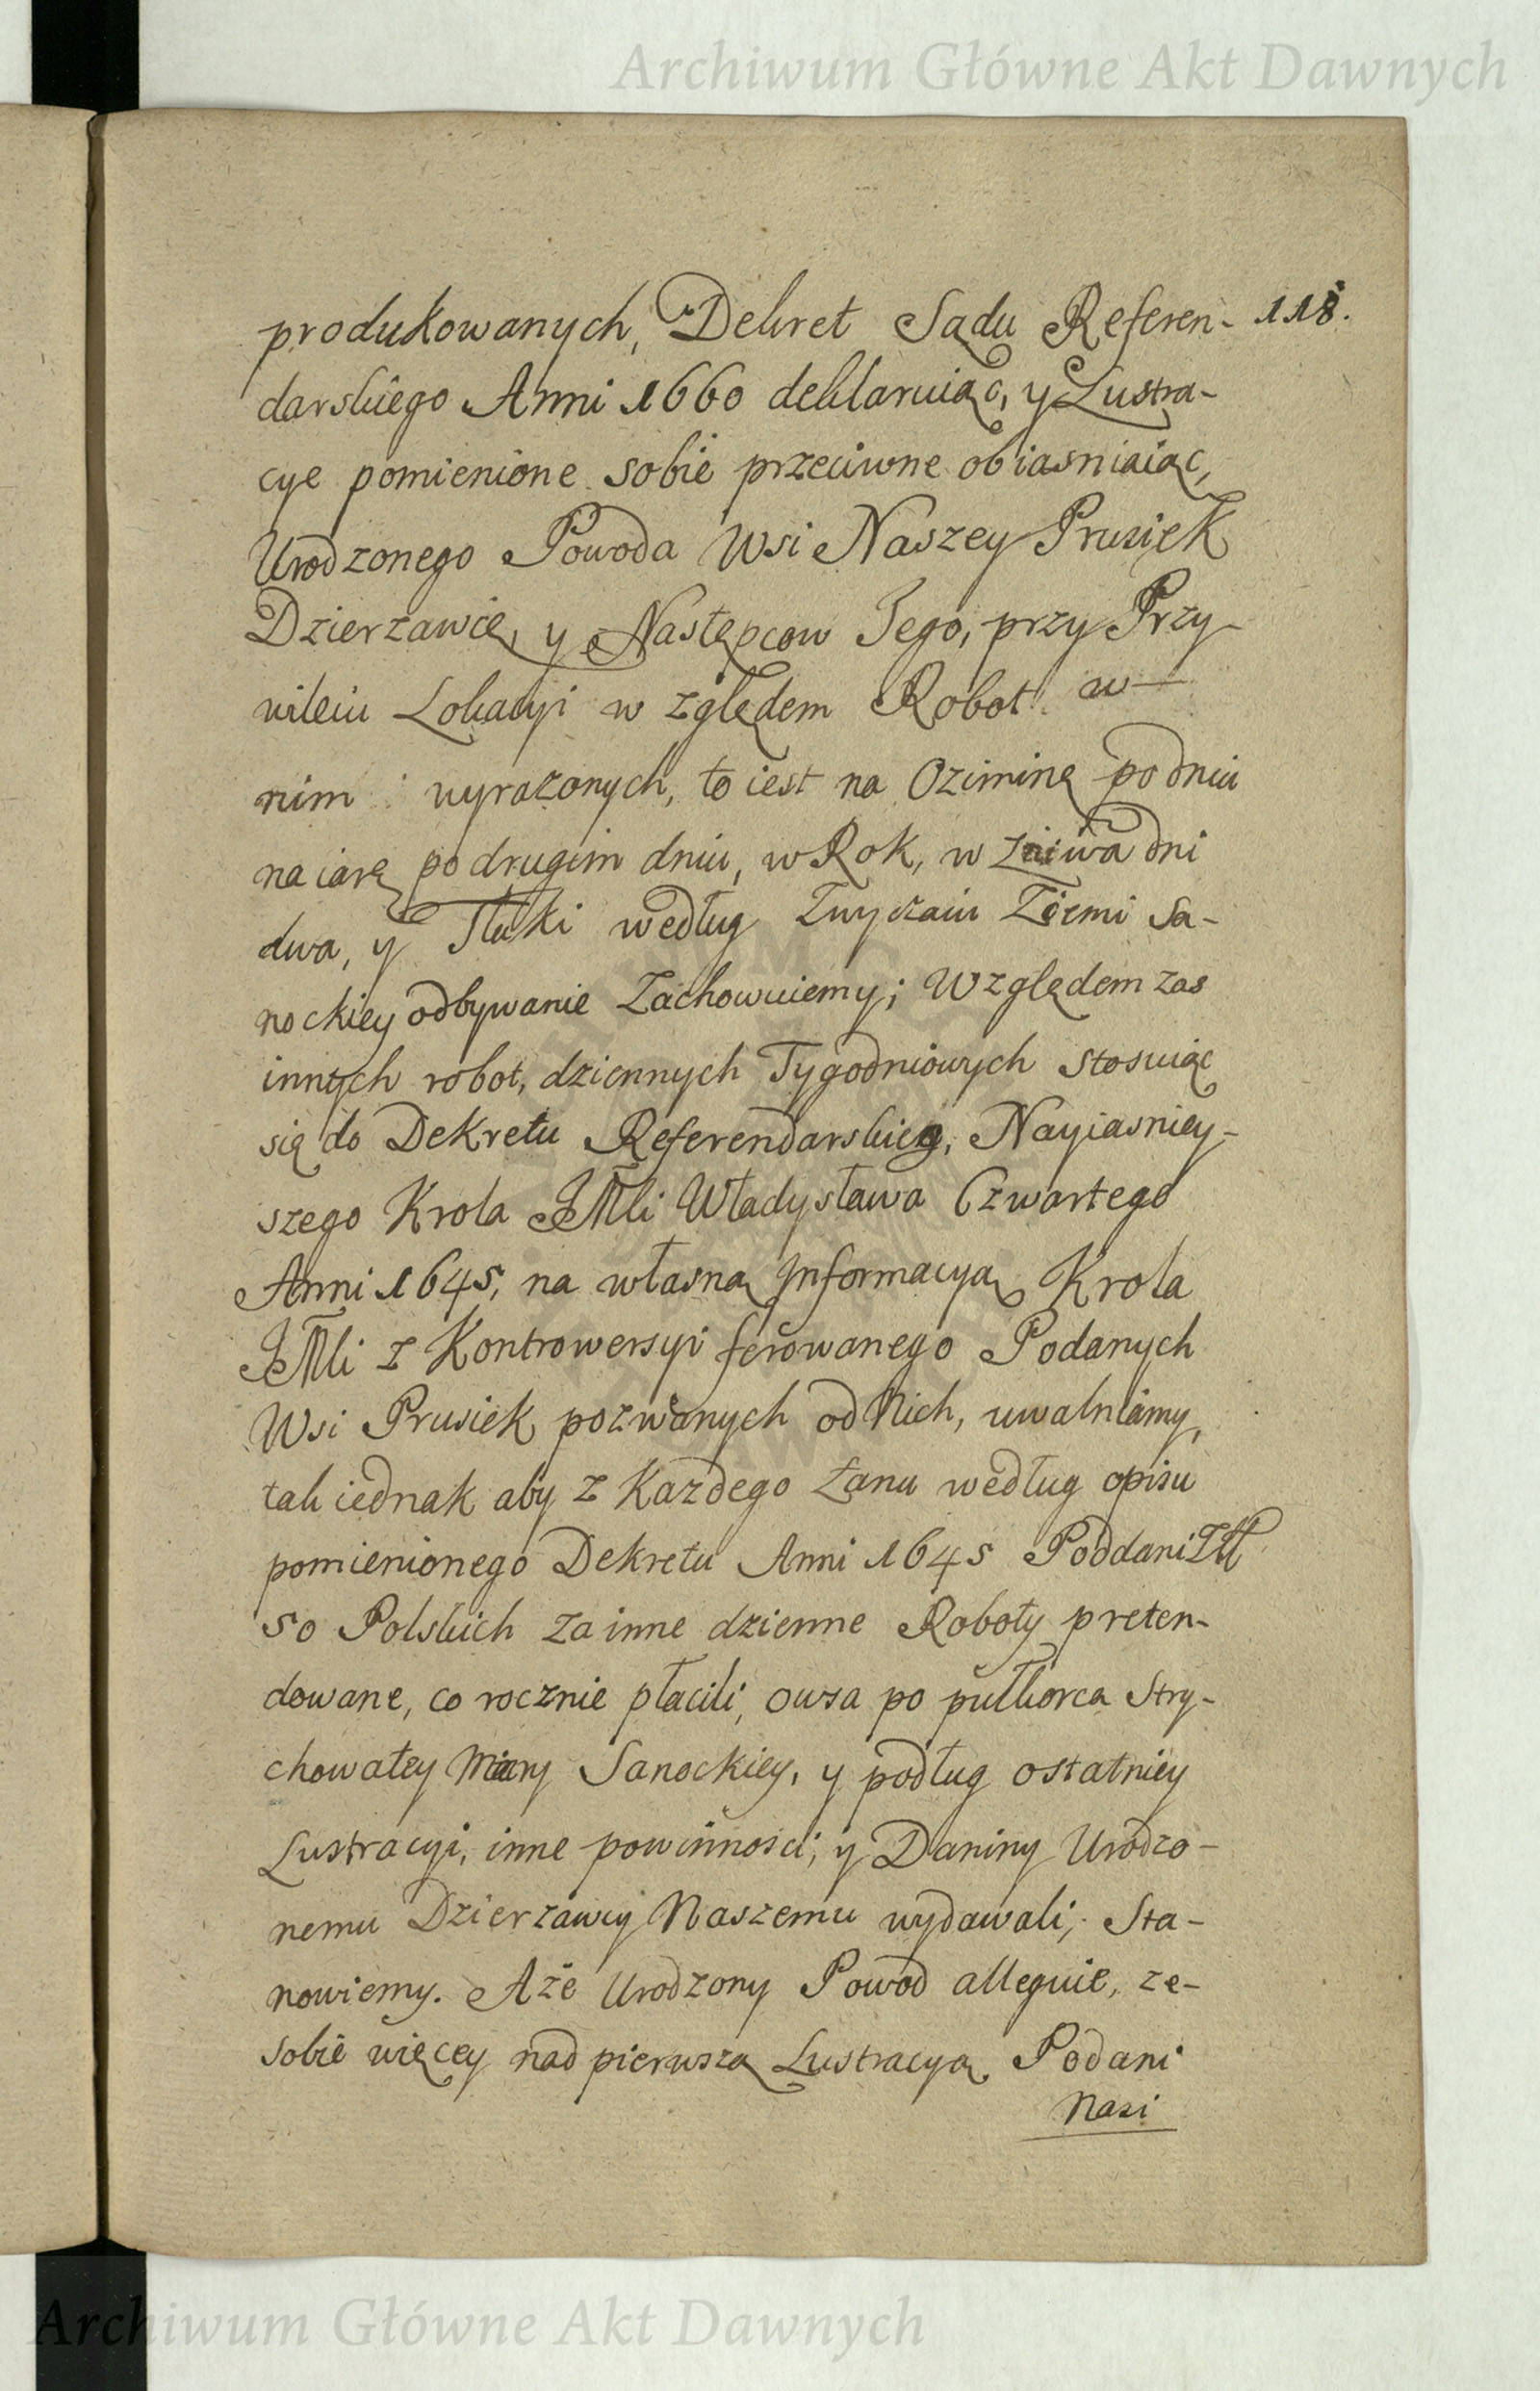 Archiwum Główne Akt Dawnych
produkowanych, Dekret Sądu Referen- 118.
darskiego Anni 1660 deklaruiąc, y Lustra-
cye pomienione sobie przeciwne obiasniaiąc,
Urodzonego Powoda Wsi Naszey Prusiek
Dzierzawcę, y Następcow Jego, przy Przy-
wileiu Lokacyi w zględem Robot w
nim wyrazonych, to iest na Oziminę po dniu
na iarę po drugim dniu, w Rok, w Zniwa dni
dwa, y Tłuki według Zwyczaiu Ziemi Sa-
nockiey odbywanie Zachowuiemy; Względem zas
innych robot, dziennych Tygodniowych stosuiąc
się do Dekretu Referendarskieg, Nayiasniey-
szego Krola JMci Władysława Czwartego
Anni 1645, na własną Jnformacyą Krola
JMci z Kontrowersyi ferowanego Podanych
Wsi Prusiek pozwanych od Nich, uwalniamy,
tak iednak aby z Każdego Łanu według opisu
pomienionego Dekretu Anni 1645 Poddani Zł
50 Polskich za inne dzienne Roboty preten-
dowane, co rocznie płacili, owsa po pułkorca Stry-
chowałey Miary Sanockiey, y podług ostatniey
Lustracyi, inne powinnosci, y Daniny Urodzo-
nemu Dzierzawcy Naszemu wydawali, Sta-
nowiemy. A że Urodzony Powod alleguie, ze-
sobie więcey nad pierwszą Lustracyą Podani
Nasi
Archiwum Główne Akt Dawnych